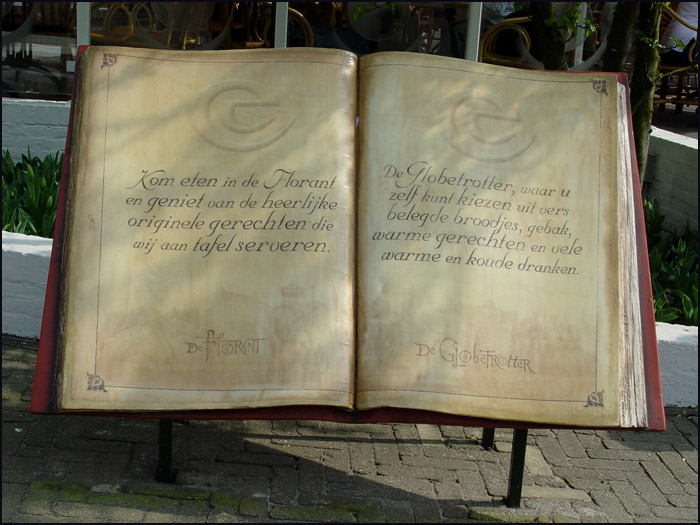 Kom eten in de Florant
en geniet van de heerlijke
originele gerechten die
wij aan tafel serveren.
De Florant
De Globetrotter, waar u
zelf kunt kiezen uit vers
belegde broodjes, gebak,
warme gerechten en vele
warme en koude dranken.
De Globetrotter